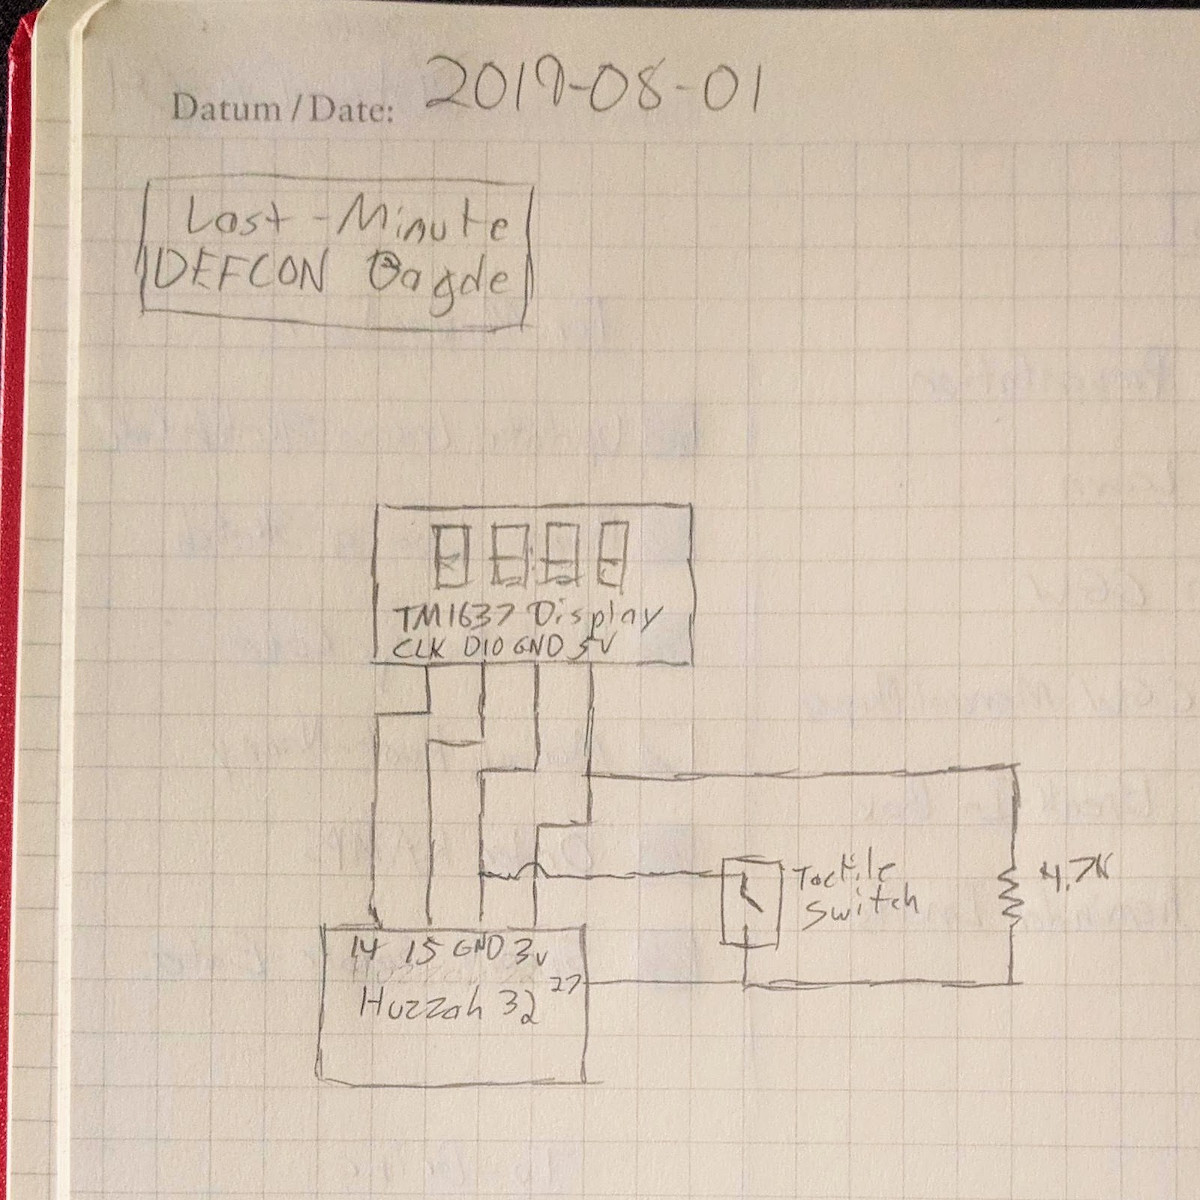 Datum / Date: 2019-08-01
Last-Minute
DEFCON Bagde
TM1637 Display
CLK DIO GND 5V
Tactile
Switch
4.7K
14 15 GND 3v
27
Huzzah 32